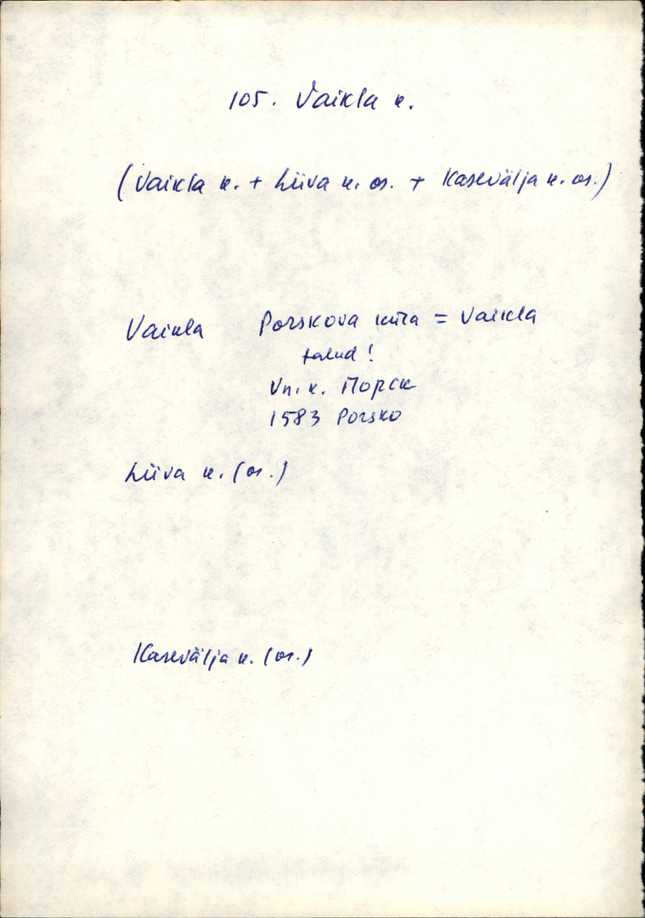 105. Vaikla k.
(Vaikla k. + Liiva k. os. + Kasevälja k. os.)
Vaikla Porskova küla = Vaikla
talud!
Vn. k. Порск
1583 Porsko
Liiva k. (os.)
Kasevälja k. (os.)